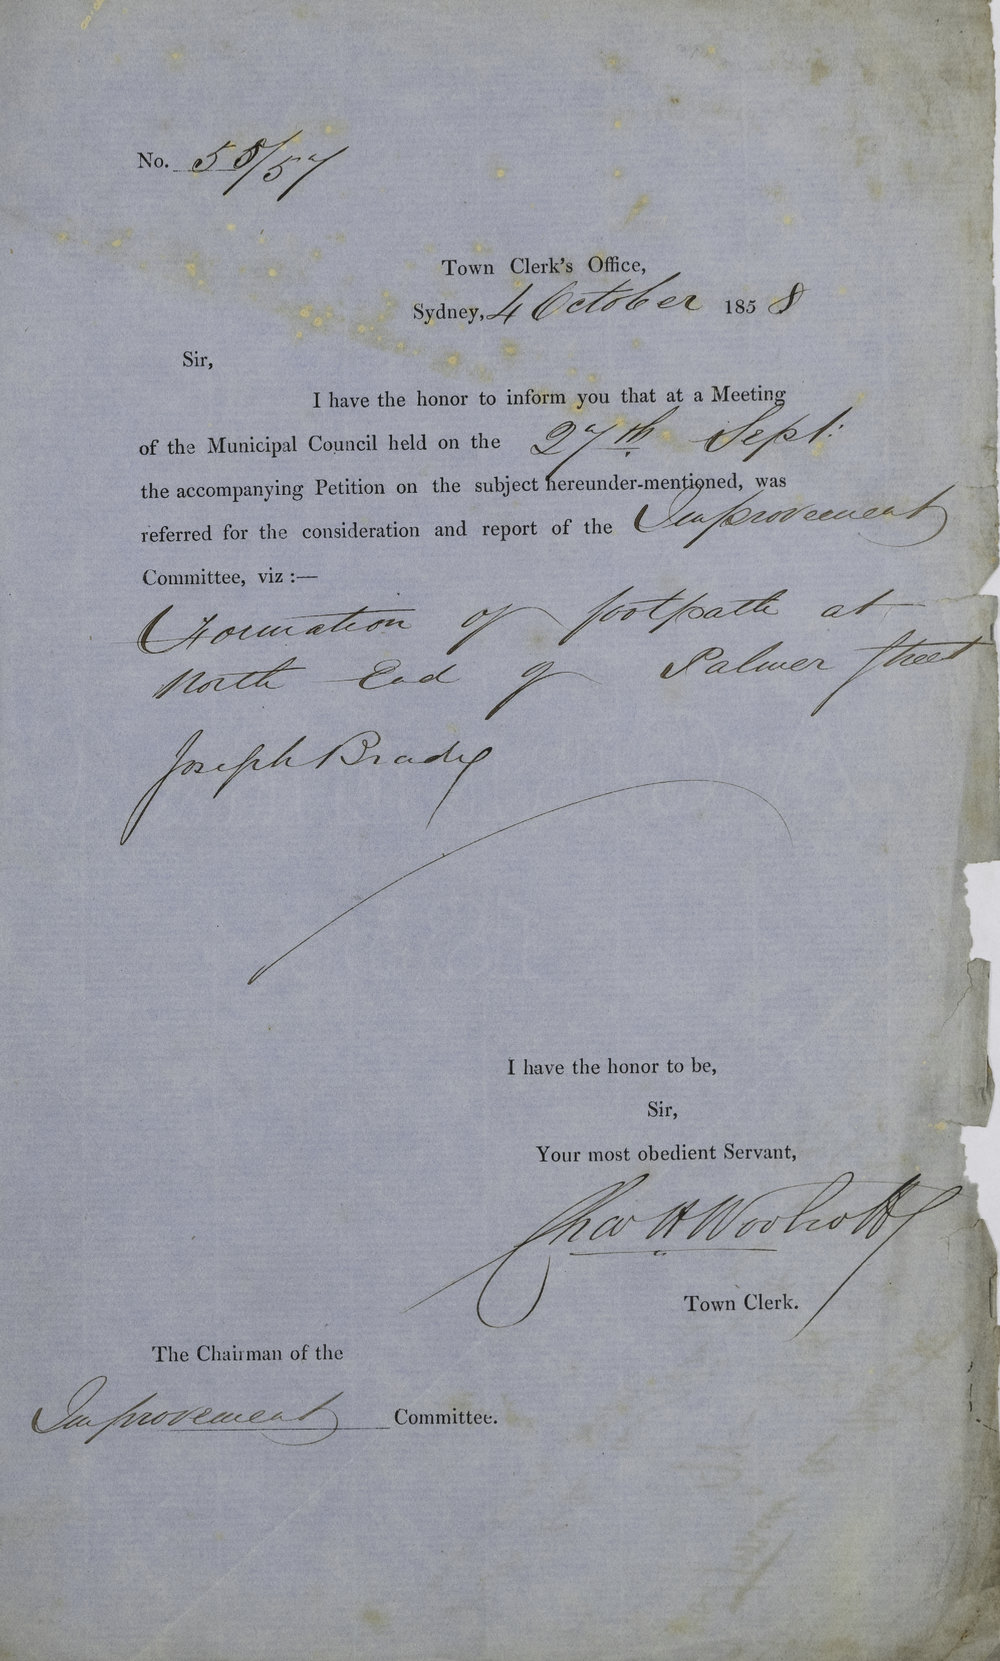 No. 58/57
Town Clerk's Office,
Sydney, 4 October 1858
Sir,
I have the honor to inform you that at a Meeting
of the Municipal Council held on the 27th Sept:
the accompanying Petition on the subject hereunder-mentioned, was
referred for the consideration and report of the Improvement
Committee, viz :—
Formation of footpath at
North End of Palmer Street
Joseph Brady
I have the honor to be,
Sir,
Your most obedient Servant,
Chas H Woolcott
Town Clerk.
The Chairman of the
Improvement Committee.